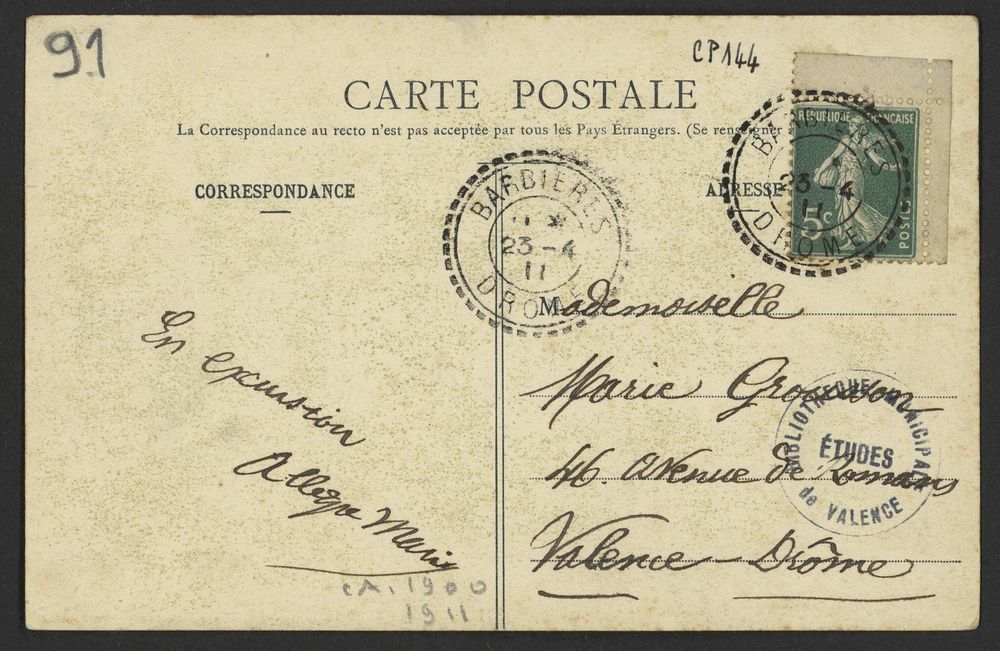 91
CP144
CARTE POSTALE
La Correspondance au recto n'est pas acceptée par tous les Pays Étrangers. (Se renseigner
CORRESPONDANCE
ADRESSE
REPUBLIQUE FRANÇAISE
5c
POSTES
BARBIERES
23-4
11
DROME
BARBIERES
11 *
23-4
11
DROME
Mademoiselle
Marie
46. Avenue de Romans
Valence - Drôme
BIBLIOTHEQUE MUNICIPALE
ÉTUDES
de VALENCE
En excursion
Marie
CA. 1900
1911